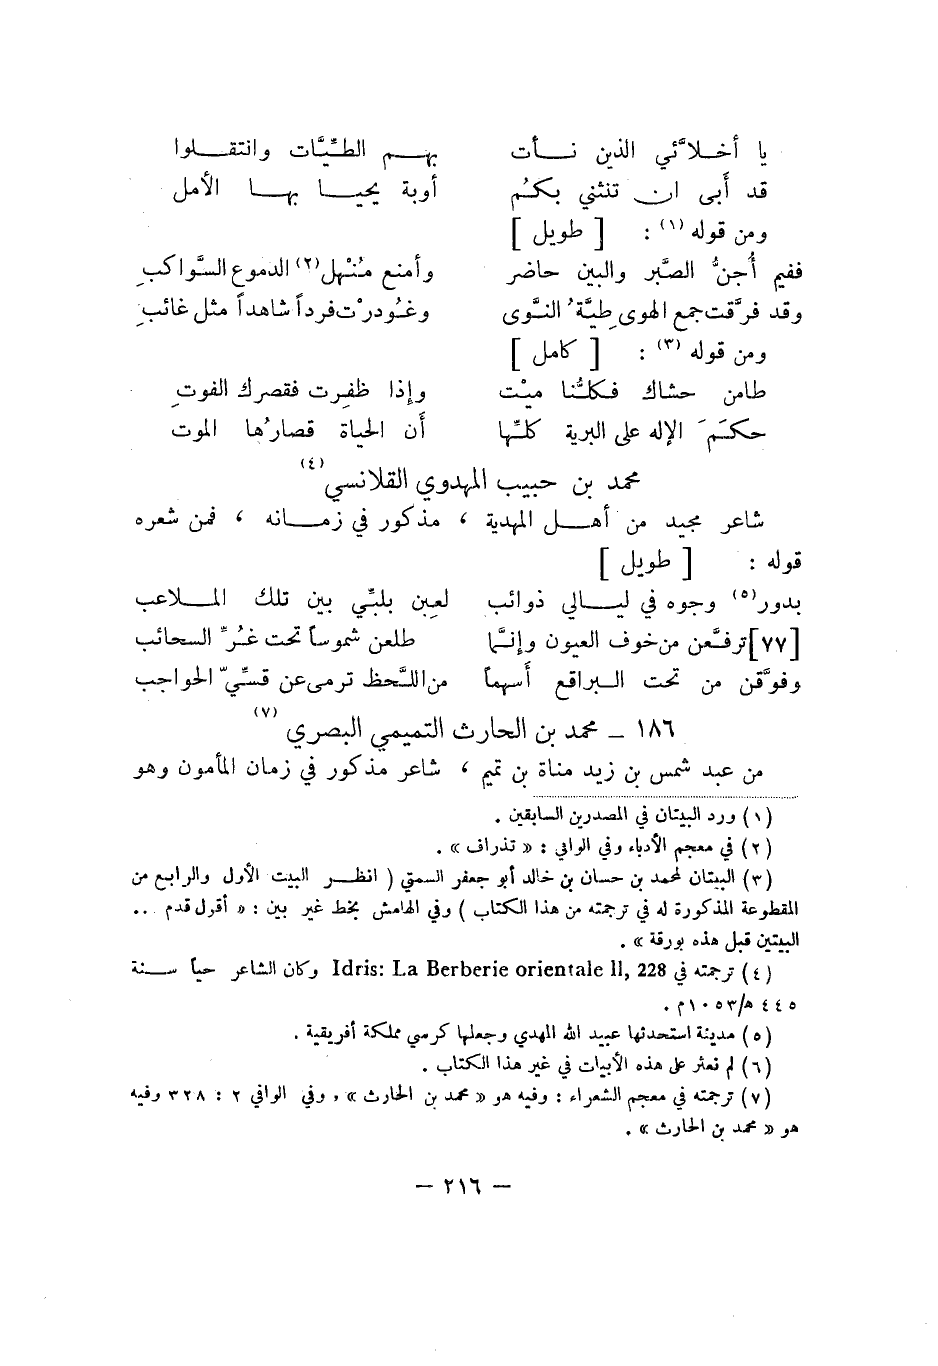 يا أخلاَّئي الذين نــأت بهــم الطيَّات وانتقــلوا
قد أَبى ان تنثني بكُم أوبة يحيــا بهــا الأمل
ومن قوله (١) : [ طويل ]
ففيم أُجنُّ الصَّبر والبين حاضر وأمنع مُنْهل(٢) الدموع السَّواكبِ
وقد فرَّقت جمع الهوى طيَّةُ النَّوى وغُودرْت فرداً شاهداً مثل غائبِ
ومن قوله (٣) : [ كامل ]
طامن حشاك فكلُّنا ميْت وإذا ظفِرت فقصرك الفوتِ
حكَمَ الإله على البرية كلّها أن الحياة قصارُها الموت
محمد بن حبيب المهدوي القلانسي (٤)
شاعر مجيد من أهــل المهدية ، مذكور في زمــانه ، فمن شعره
قوله : [ طويل ]
بدور(٥) وجوه في ليــالي ذوائب لعبن بلبّي بين تلك المــلاعب
[٧٧] ترفَّعن من خوف العيون وإنَّما طلعن شموساً تحت غُرِّ السحائب
وفوَّقن من تحت البراقع أَسهماً من اللَّحظ ترمى عن قسيِّ الحواجب
١٨٦ ـ محمد بن الحارث التميمي البصري (٧)
من عبد شمس بن زيد مناة بن تميم ، شاعر مذكور في زمان المأمون وهو
(١) ورد البيتان في المصدرين السابقين .
(٢) في معجم الأدباء وفي الوافي : « تذراف » .
(٣) البيتان لمحمد بن حسان بن خالد أبو جعفر السمتي ( انظــر البيت الأول والرابع من
المقطوعة المذكورة له في ترجمته من هذا الكتاب ) وفي الهامش بخط غير بين : « أقرل قدم ..
البيتين قبل هذه بورقة » .
(٤) ترجمته في Idris: La Berberie orientale II, 228 وكان الشاعر حياً ســنة
٤٤٥ هـ/١٠٥٣م .
(٥) مدينة استحدثها عبيد الله المهدي وجعلها كرسي مملكة أفريقية .
(٦) لم نعثر على هذه الأبيات في غير هذا الكتاب .
(٧) ترجمته في معجم الشعراء : وفيه هو « محمد بن الحارث » ، وفي الوافي ٢ : ٣٢٨ وفيه
هو « محمد بن الحارث » .
— ٢١٦ —